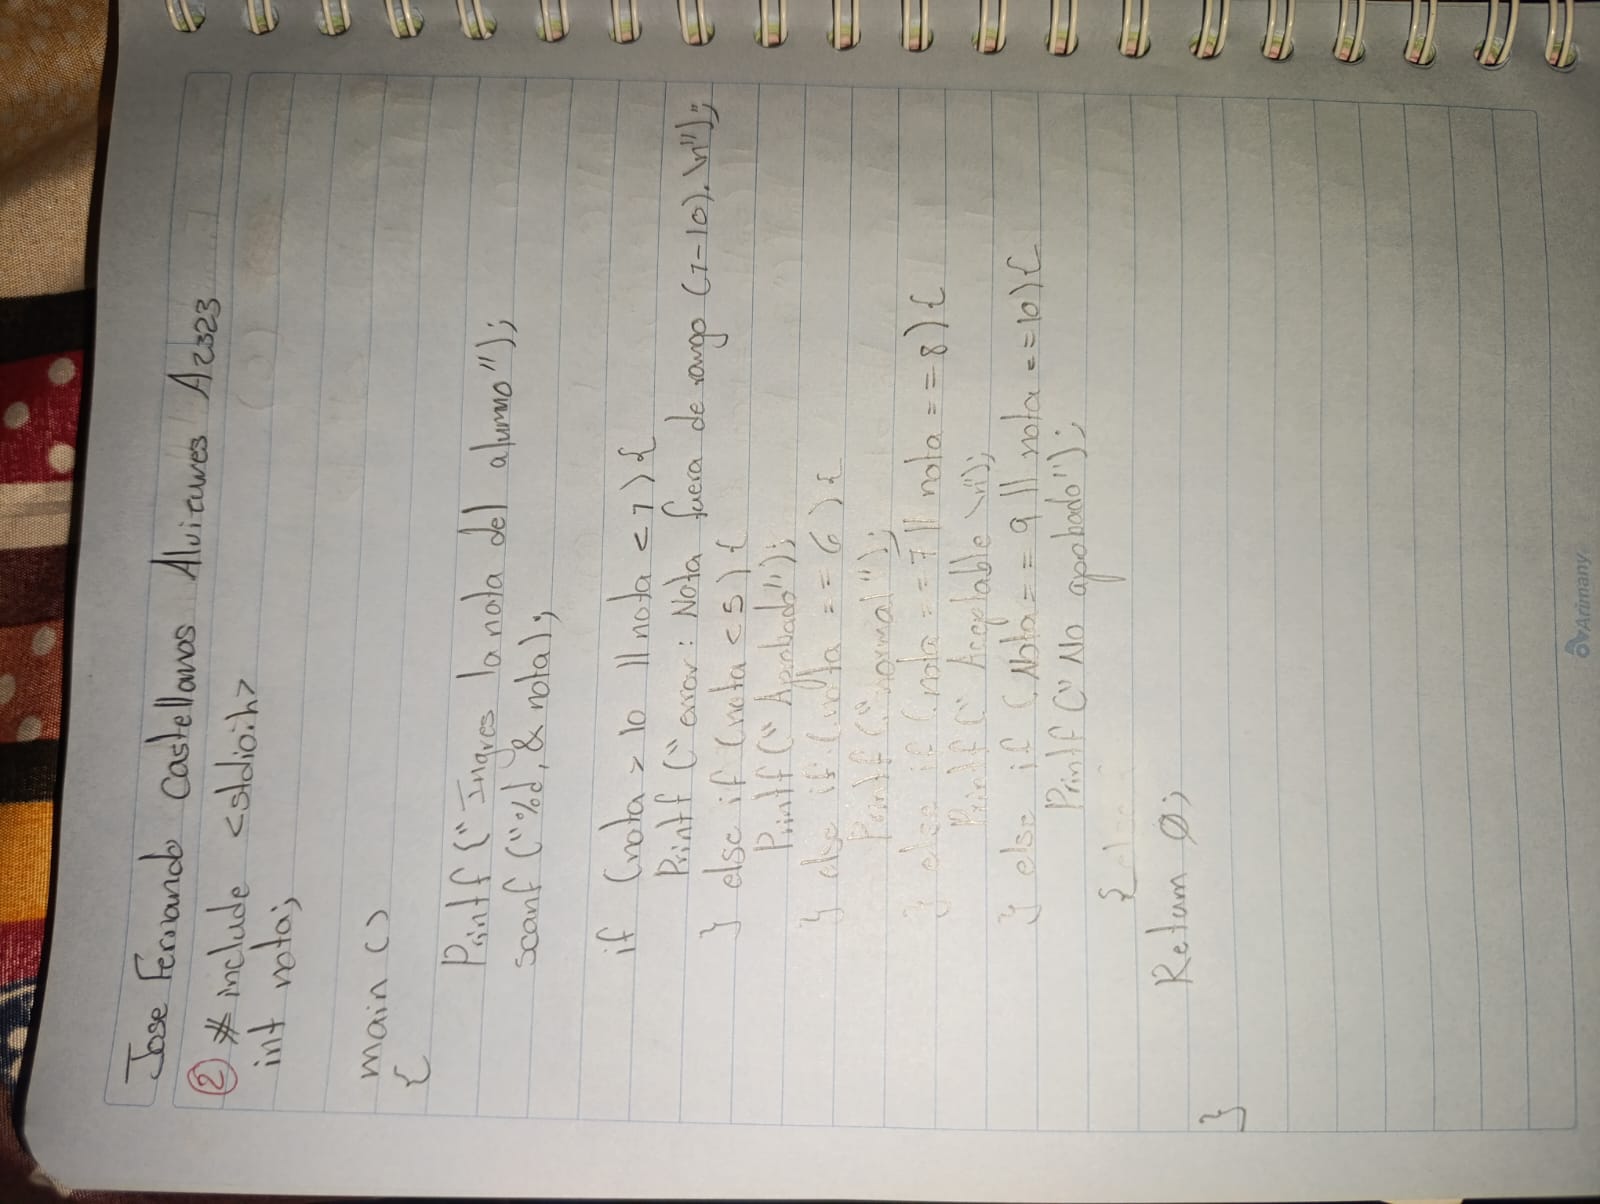 Jose Fernando Castellanos Alvizures A2323
② #include <stdio.h>
int nota;
main ()
{
Printf ("Ingres la nota del alumno");
scanf ("%d, & nota);
if (nota > 10 || nota < 1) {
Printf ("error: Nota fuera de rango (1-10). \n");
} else if (nota < 5) {
Printf (" Aprobado");
} else if (nota == 6) {
Printf ("normal");
} else if (nota == 7 || nota == 8) {
Printf (" Aceptable \n);
} else if (Nota == 9 || nota == 10) {
Printf (" No apobado");
{ else
Return 0;
}
Arimany